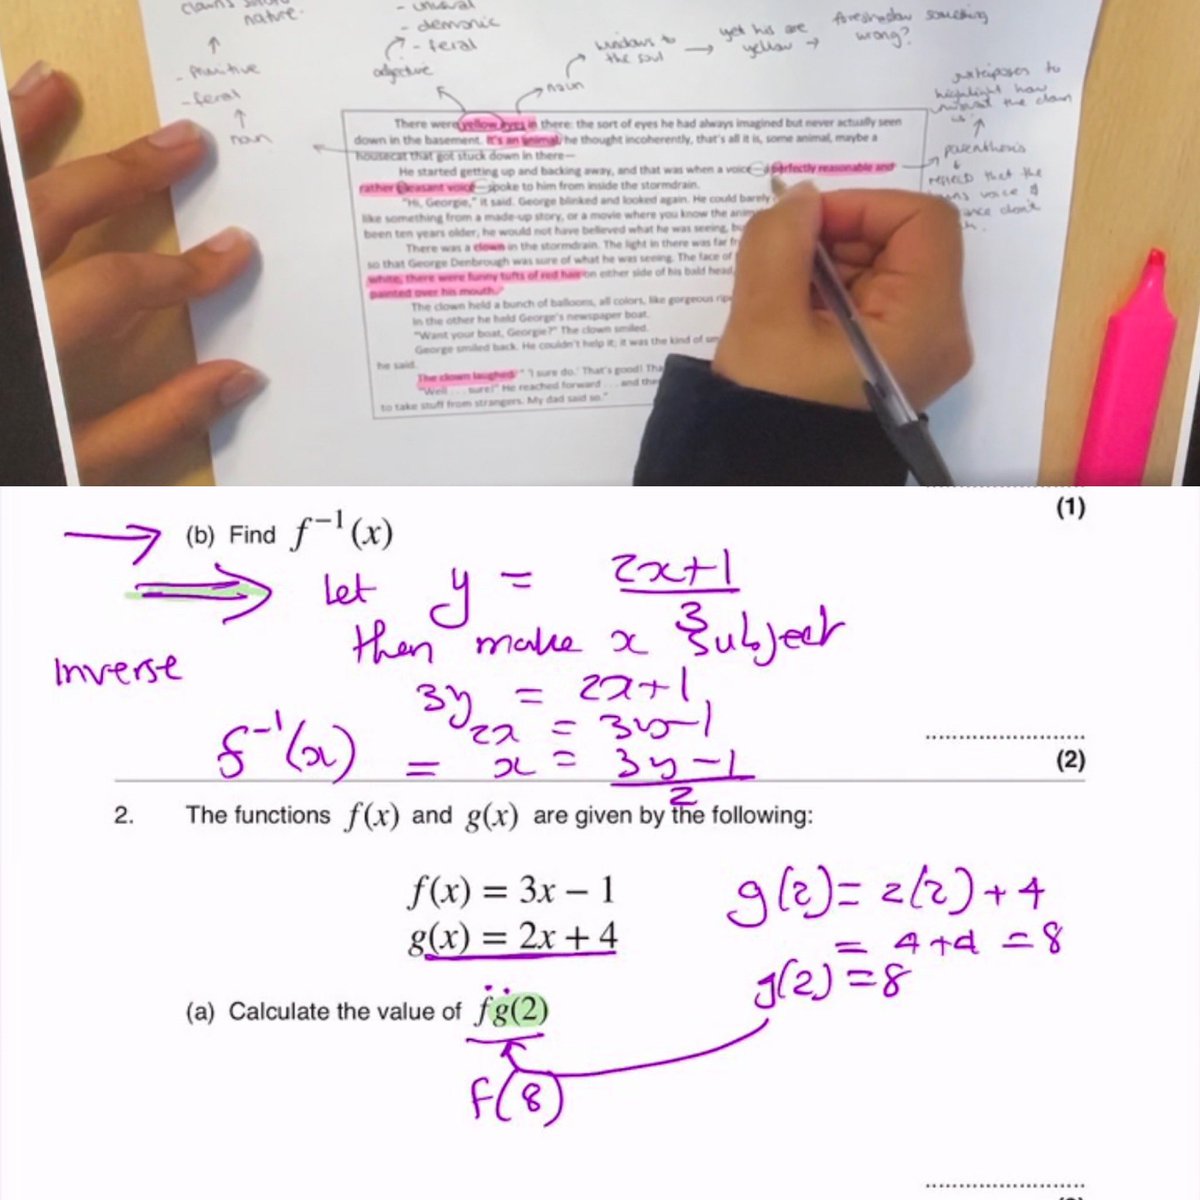 nature.
- unusual
- demonic
- feral
adjective
- primitive
- feral
noun
noun
windows to
the soul
yet his are
yellow
foreshadow something
wrong?
juxtaposes to
highlight how
the clown
is
parenthesis
reflects that the
voice
There were yellow eyes in there: the sort of eyes he had always imagined but never actually seen
down in the basement. It's an animal, he thought incoherently, that's all it is, some animal, maybe a
housecat that got stuck down in there—
He started getting up and backing away, and that was when a voice—a perfectly reasonable and
rather pleasant voice—spoke to him from inside the stormdrain.
"Hi, Georgie," it said. George blinked and looked again. He could barely
like something from a made-up story, or a movie where you know the
been ten years older, he would not have believed what he was seeing,
There was a clown in the stormdrain. The light in there was far
so that George Denbrough was sure of what he was seeing. The face of
white, there were funny tufts of red hair on either side of his bald head,
painted over his mouth."
The clown held a bunch of balloons, all colors, like gorgeous
In the other he held George's newspaper boat.
"Want your boat, Georgie?" The clown smiled.
George smiled back. He couldn't help it; it was the kind of
he said.
The clown laughed. " 'I sure do.' That's good!
"Well . . . sure!" He reached forward . . . and
to take stuff from strangers. My dad said so."
(1)
(b) Find f⁻¹(x)
Let y = 2x+1
3
then make x subject
Inverse
3y = 2x+1
2x = 3y-1
f⁻¹(x) = x = 3y-1
2
(2)
2. The functions f(x) and g(x) are given by the following:
f(x) = 3x − 1
g(x) = 2x + 4
g(2) = 2(2) + 4
= 4+4 = 8
g(2) = 8
(a) Calculate the value of fg(2)
f(8)